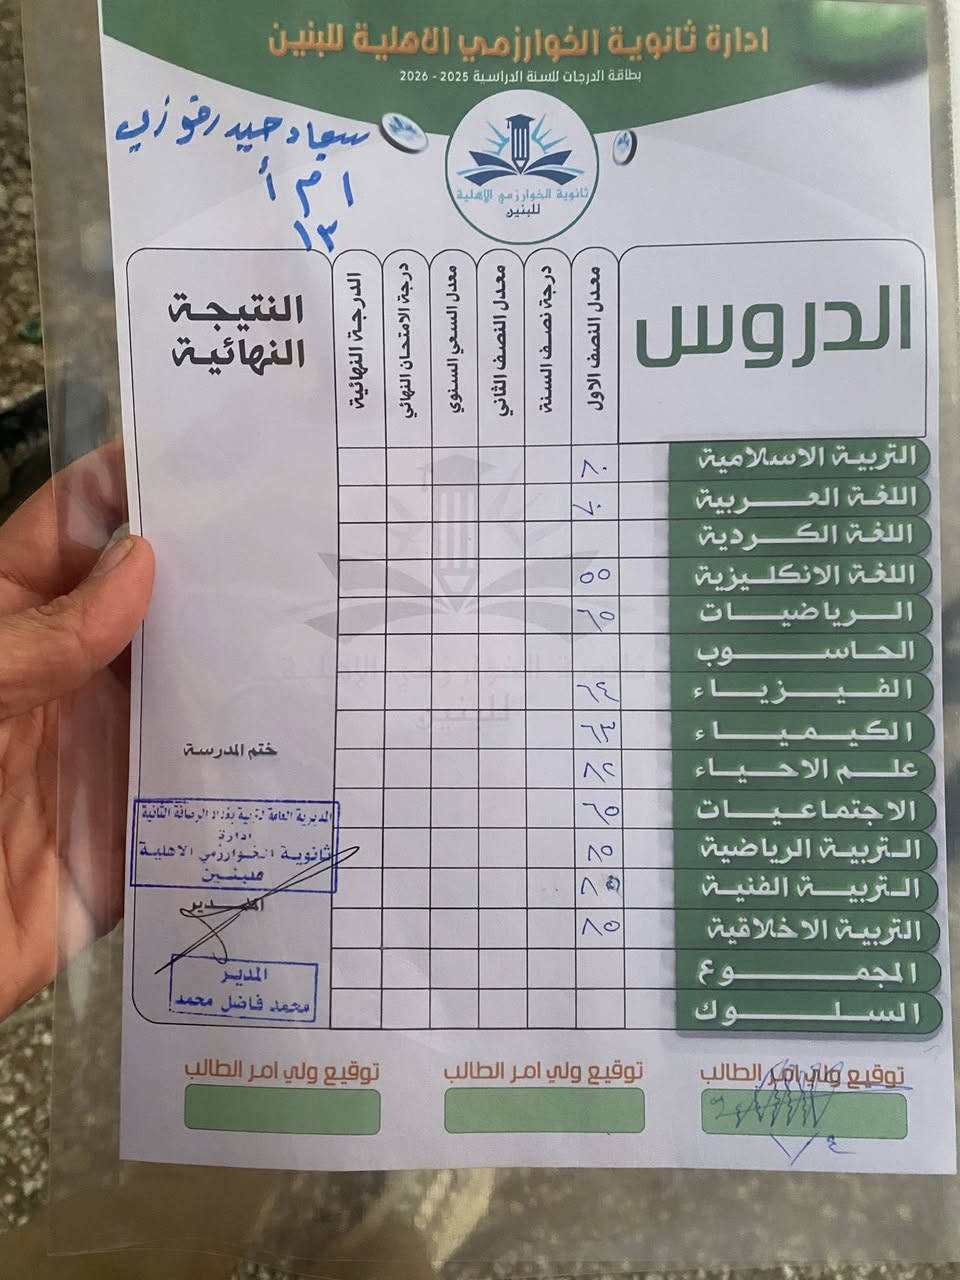 ادارة ثانوية الخوارزمي الاهلية للبنين
بطاقة الدرجات للسنة الدراسية 2025 - 2026
سجاد حيدر فوزي
١ م أ
١٣
ثانوية الخوارزمي الاهلية
للبنين
الدروس
معدل النصف الاول
درجة نصف السنة
معدل النصف الثاني
معدل السعي السنوي
درجة الامتحان النهائي
الدرجة النهائية
النتيجة
النهائية
التربية الاسلامية ٨٠
اللغة العربية
اللغة الكردية
اللغة الانكليزية ٥٥
الرياضيات ٦٥
الحاسوب
الفيزياء ٦٤
الكيمياء ٦٣
علم الاحياء ٨٢
الاجتماعيات ٦٥
التربية الرياضية ٨٥
التربية الفنية
التربية الاخلاقية ٨٥
المجموع
السلوك
ختم المدرسة
المديرية العامة لتربية بغداد الرصافة الثانية
ادارة
ثانوية الخوارزمي الاهلية
للبنين
المدير
المدير
محمد فاضل محمد
توقيع ولي امر الطالب
توقيع ولي امر الطالب
توقيع ولي امر الطالب